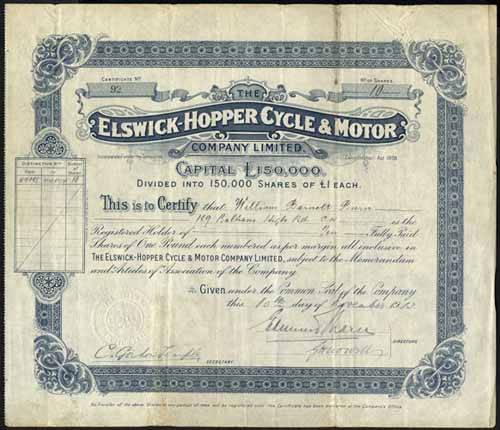 CERTIFICATE No
No OF SHARES
92
10
THE
ELSWICK-HOPPER CYCLE & MOTOR
COMPANY LIMITED.
CAPITAL £150,000
DIVIDED INTO 150,000 SHARES OF £1 EACH.
This is to Certify that William Barnett Dunn
169 Balham High Rd. is the
Registered Holder of Ten Fully Paid
Shares of One Pound each numbered as per margin all inclusive in
THE ELSWICK-HOPPER CYCLE & MOTOR COMPANY LIMITED, subject to the Memorandum
and Articles of Association of the Company
Given under the Common Seal of the Company
this day of November
DIRECTORS
SECRETARY
No Transfer of the above Shares or any portion of same will be registered until this Certificate has been delivered at the Company's Office.